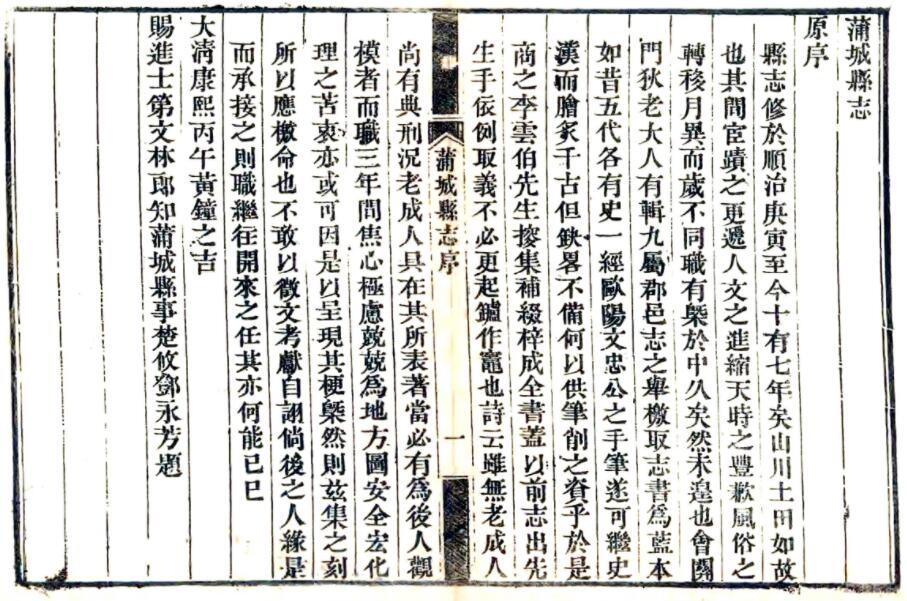 蒲城縣志
原序
縣志修於順治庚寅至今十有七年矣山川土田如故
也其間宦蹟之更遞人文之進縮天時之豐歉風俗之
轉移月異而歲不同職有槩於中久矣然未遑也會關
門狄老大人有輯九屬郡邑志之舉檄取志書為藍本
如昔五代各有史一經歐陽文忠公之手筆遂可繼史
漢而膾炙千古但缺畧不備何以供筆削之資乎於是
商之李雲伯先生搜集補綴梓成全書蓋以前志出先
生手依例取義不必更起鑪作竈也詩云雖無老成人
蒲城縣志序
一
尚有典刑況老成人具在其所表著當必有為後人觀
模者而職三年間焦心極慮兢兢為地方圖安全宏化
理之苦衷亦或可因是以呈現其梗槩然則茲集之刻
所以應檄命也不敢以徵文考獻自詡倘後之人緣是
而承接之則職繼往開來之任其亦何能已已
大淸康熙丙午黃鐘之吉
賜進士第文林郎知蒲城縣事楚攸鄧永芳題